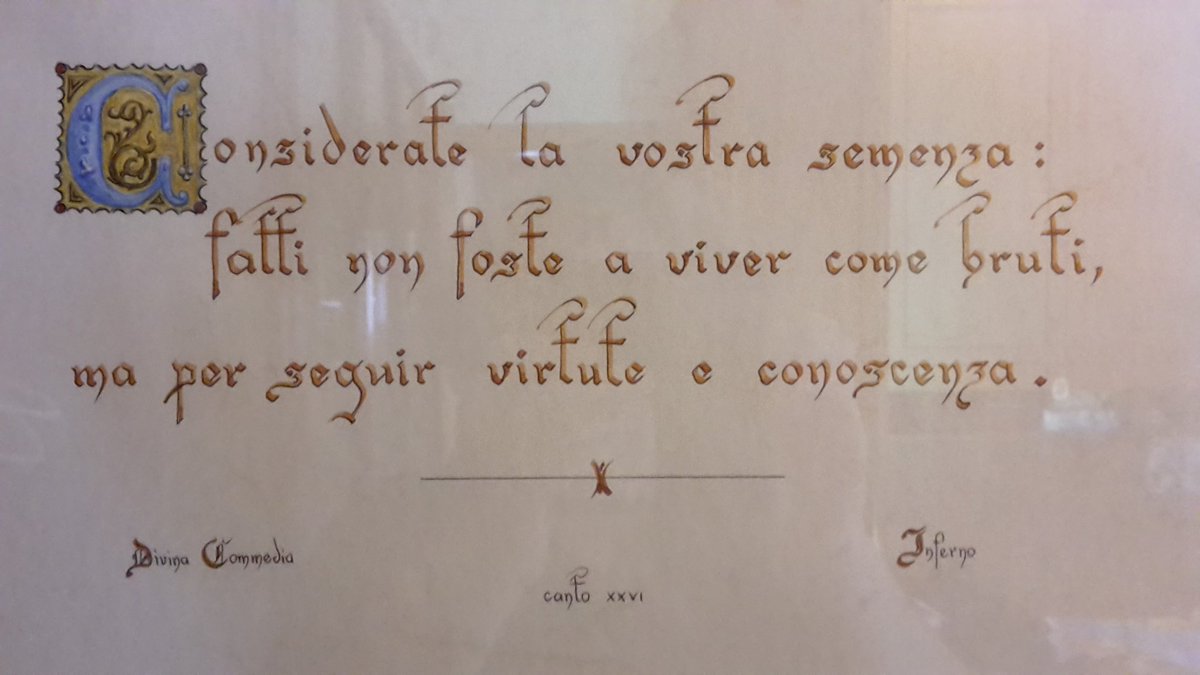 Considerate la vostra semenza:
fatti non foste a viver come bruti,
ma per seguir virtute e conoscenza.
Divina Commedia
Inferno
canto xxvi